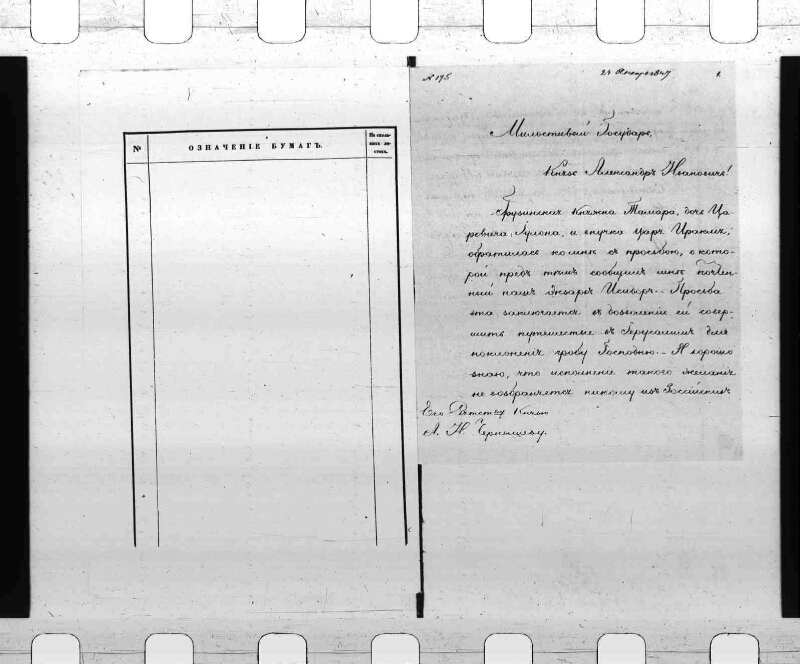 №
ОЗНАЧЕНІЕ БУМАГЪ.
На сколь-
кихъ ли-
стахъ.
№ 175
24 Января 1847
1.
Милостивый Государь,
Князь Александръ Ивановичъ!
Грузинская Княжна Тамара, дочь Ца-
ревича Іулона, и внучка Царя Ираклія,
обратилась ко мнѣ съ просьбою, о кото-
рой предъ тѣмъ сообщилъ мнѣ почтен-
ный нашъ Экзархъ Исидоръ. Просьба
эта заключается въ дозволеніи ей совер-
шить путешествіе въ Іерусалимъ для
поклоненія гробу Господню. Я хорошо
знаю, что исполненіе такого желанія
не возбраняется никому изъ Россійскихъ
Его Князю
А. И. Чернышеву.